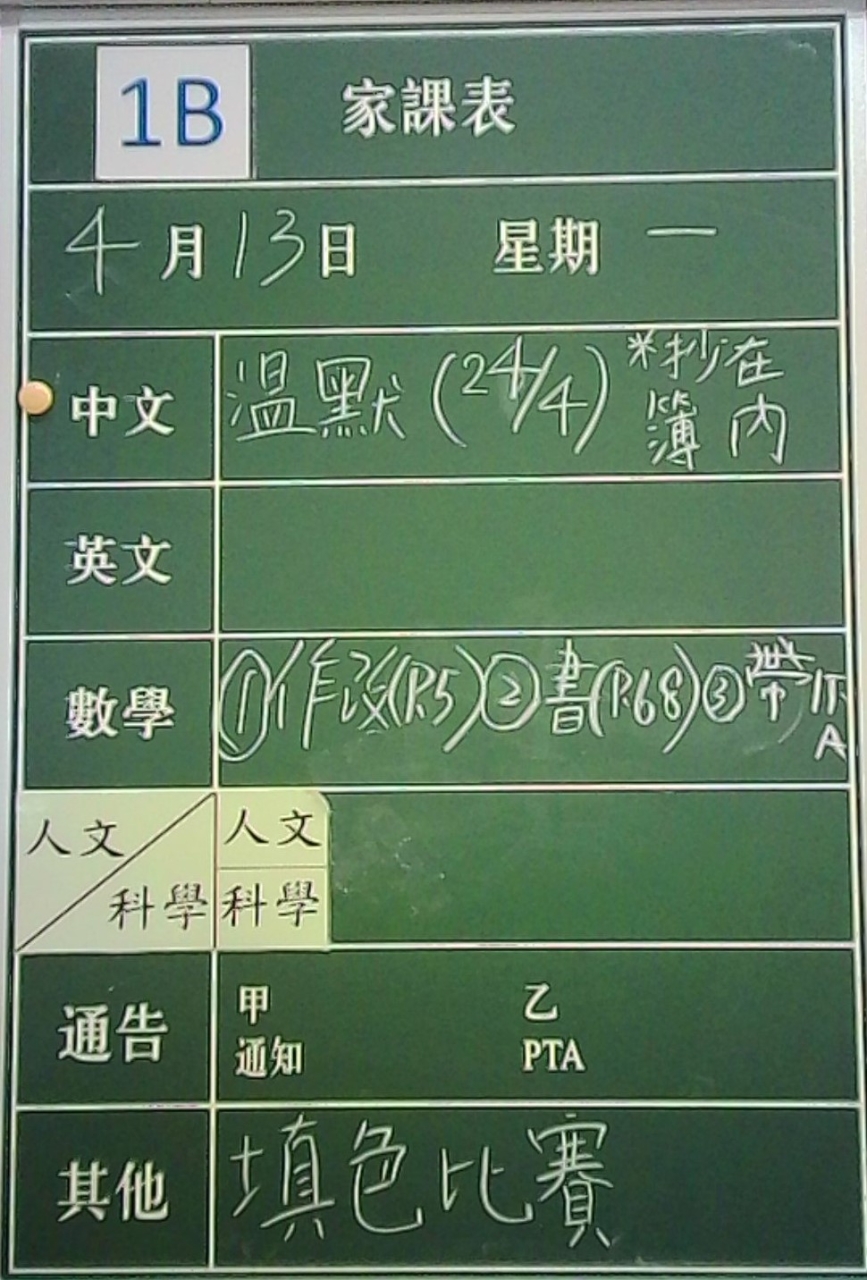 1B 家課表
4月13日 星期一
中文 溫默(24/4) *抄在簿內
英文
數學 ①作改(P.5)②書(P.68)③帶作A
人文/科學 人文
科學
通告 甲 乙
通知 PTA
其他 填色比賽